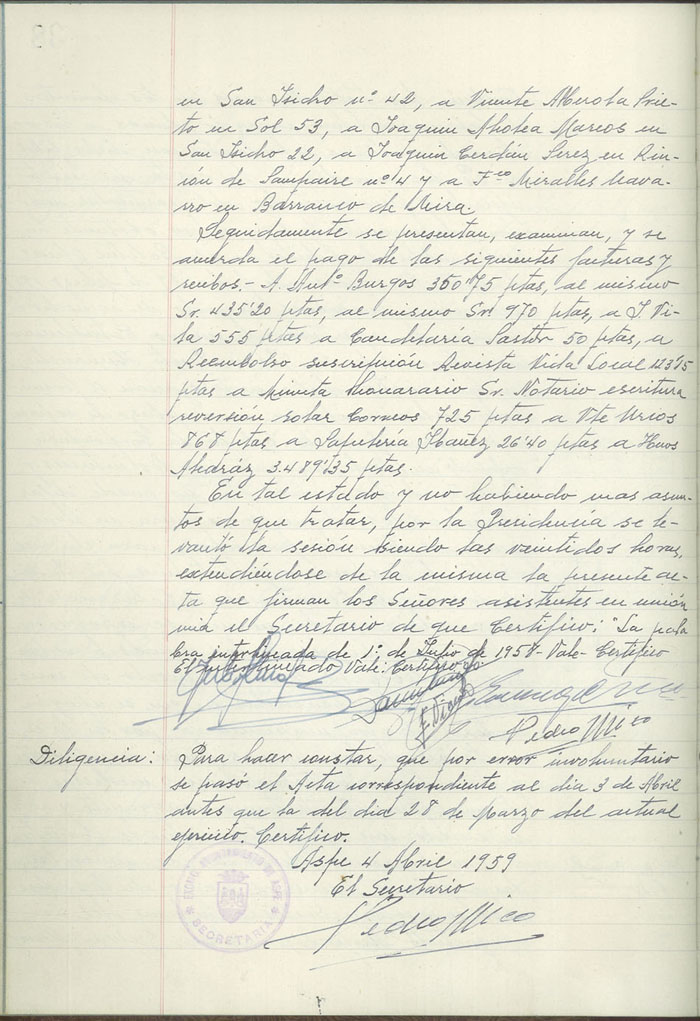 en San Isidro nº 42, a Vicente Alberola Prie-
to en Sol 53, a Joaquin Alzolea Marcos en
San Isidro 22, a Joaquin Cerdán Perez en Rin-
cón de nº 4 y a Fco Miralles Nava-
rro en Barranco de Mira.
Seguidamente se presentan, examinan, y se
acuerda el pago de las siguientes facturas y
recibos.- A Antº Burgos 350'75 ptas, al mismo
Sr. 435'20 ptas, al mismo Sr. 970 ptas, a J. Vi-
la 555 ptas a Candelaria Pastor 50 ptas, a
Reembolso suscripción Revista Vida Local 123'15
ptas a Minuta Honorario Sr. Notario escritura
reversión solar Correos 725 ptas a Vte Urios
868 ptas a Papelería Ibañez 26'40 ptas a Hnos
3.489'35 ptas.
En tal estado y no habiendo mas asun-
tos de que tratar, por la Presidencia se le-
vantó la sesión siendo las veintidos horas,
extendiéndose de la misma la presente ac-
ta que firman los Señores asistentes en unión
mia el Secretario de que Certifico: "La pala
bra entrelineada de 1º de Julio de 1958- Vale- Certifico
El interlineado Vale: Certifico
Pedro Mico
Diligencia: Para hacer constar, que por error involuntario
se pasó el Acta correspondiente al dia 3 de Abril
antes que la del dia 28 de Marzo del actual
ejercicio. Certifico.
Aspe 4 Abril 1959
El Secretario
EXCMO. AYUNTAMIENTO DE ASPE
SECRETARIA
Pedro Mico